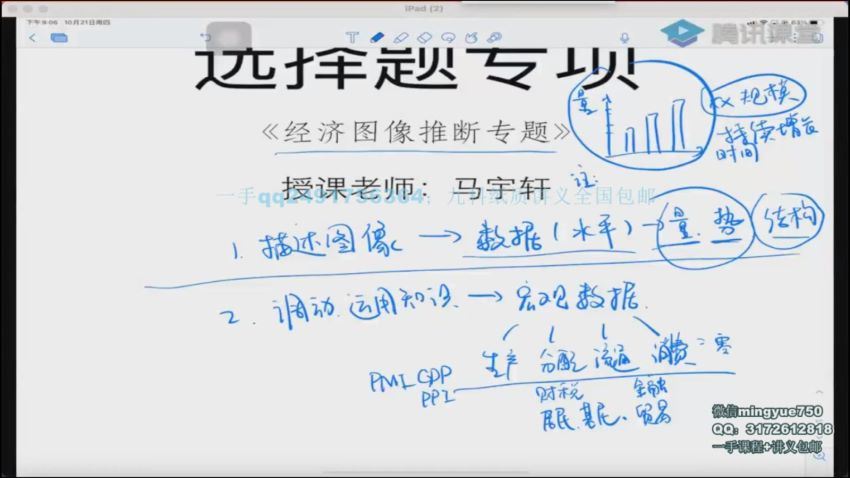 iPad (2)
下午9:06 10月21日周四
腾讯课堂
选择题专项
《经济图像推断专题》
授课老师：马宇轩
注:
量
xx规模
持续增长
时间
1. 描述图像 → 数据(水平) - 量.势 结构
2. 调动.运用知识 → 宏观数据.
生产 分配 流通 消费:零
PMI GDP
PPI
财税 金融
居民.基尼. 贸易
微信mingyue750
QQ：3172612818
一手课程+讲义包邮